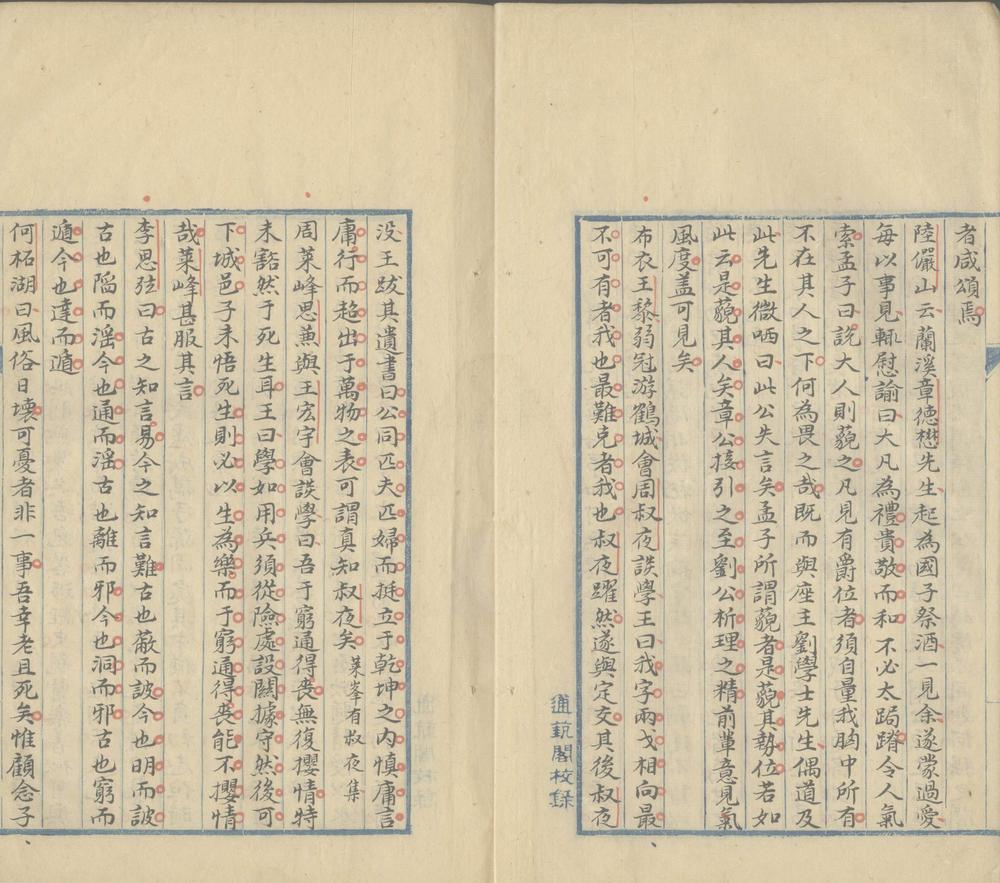 者咸頌焉
陸儼山云蘭溪章德懋先生起為國子祭酒一見余遂蒙過愛
每以事見輒慰諭曰大凡為禮貴敬而和不必太跼蹐令人氣
索孟子曰說大人則藐之凡見有爵位者須自量我胸中所有
不在其人之下何為畏之哉既而與座主劉學士先生偶道及
此先生微哂曰此公失言矣孟子所謂藐者是藐其勢位若如
此云是藐其人矣章公接引之至劉公析理之精前輩意見氣
風度盖可見矣
布衣王黎弱冠游鶴城會周叔夜談學王曰我字兩戈相向最
不可有者我也最難克者我也叔夜躍然遂與定交其後叔夜
通藝閣校錄
没王跋其遺書曰公同匹夫匹婦而挺立于乾坤之内慎庸言
庸行而超出于萬物之表可謂真知叔夜矣萊峯有叔夜集
周萊峰思兼與王宏宇會談學曰吾于窮通得丧無復攖情特
未豁然于死生耳王曰學如用兵須從險處設關據守然後可
下城邑子未悟死生則必以生為樂而于窮通得丧能不攖情
哉萊峰甚服其言
李思弦曰古之知言易今之知言難古也蔽而詖今也明而詖
古也陷而滛今也通而滛古也離而邪今也洞而邪古也窮而
遁今也達而遁
何柘湖曰風俗日壊可憂者非一事吾幸老且死矣惟顧念子